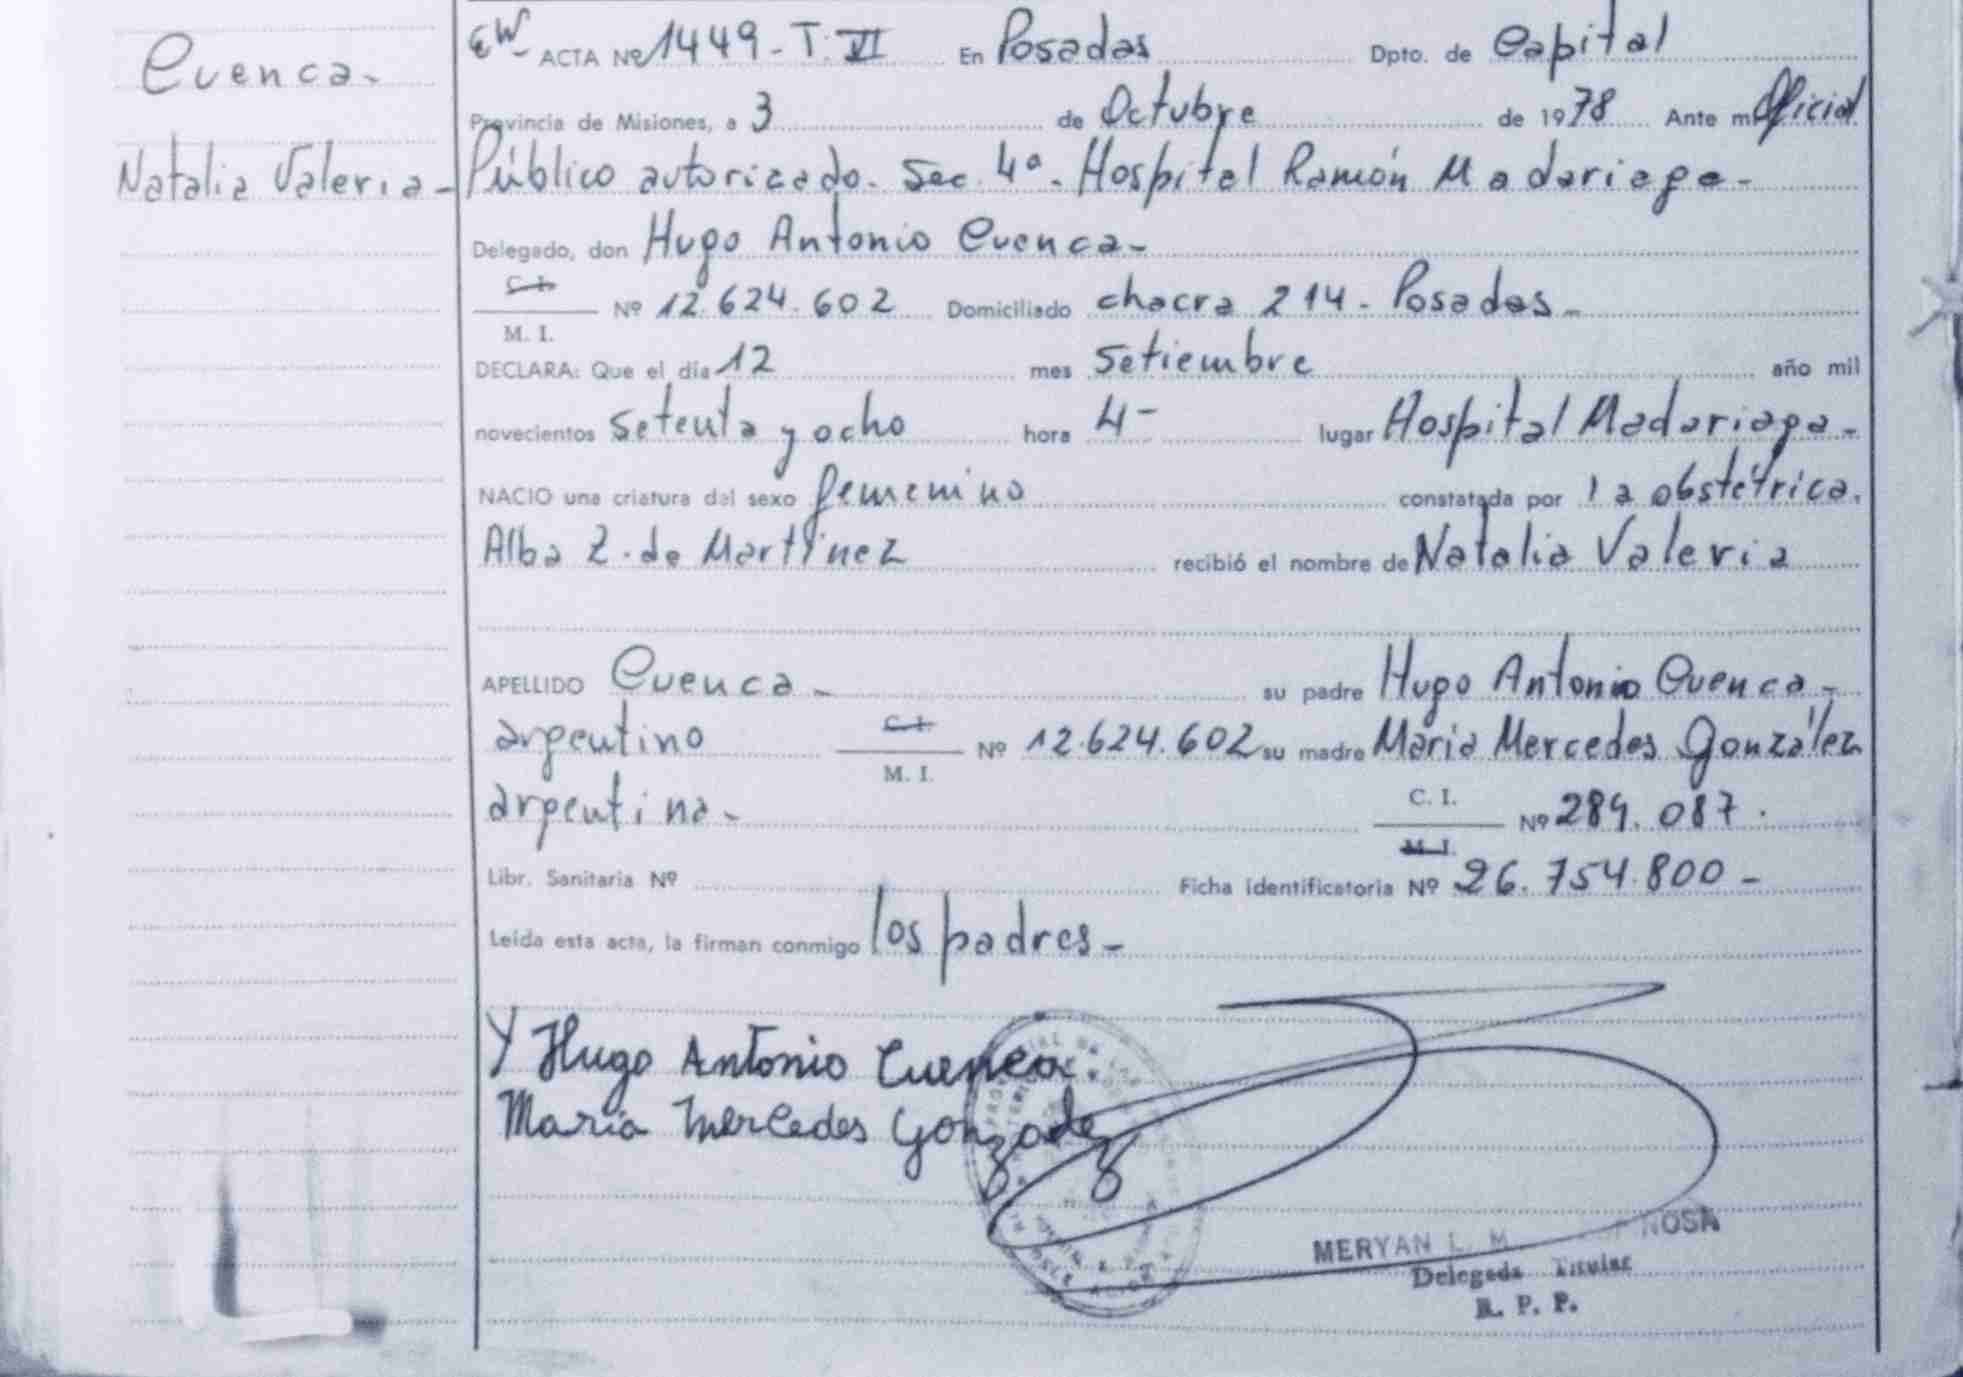 Cuenca-
Natalia Valeria-
EW ACTA Nº 1449-T.VI En Posadas Dpto. de Capital
Provincia de Misiones, a 3 de Octubre de 1978 Ante mí Oficial
Público autorizado. Sec. 4ª. Hospital Ramón Madariaga-
Delegado, don Hugo Antonio Cuenca-
C. I.
Nº 12.624.602 Domiciliado chacra 214- Posadas-
M. I.
DECLARA: Que el día 12 mes Setiembre año mil
novecientos Setenta y ocho hora 4- lugar Hospital Madariaga-
NACIO una criatura del sexo femenino constatada por la obstétrica.
Alba Z. de Martínez recibió el nombre de Natalia Valeria
APELLIDO Cuenca- su padre Hugo Antonio Cuenca-
argentino C. I. Nº 12.624.602 su madre María Mercedes González
M. I.
argentina- C. I. Nº 289.087.
M. I.
Libr. Sanitaria Nº Ficha identificatoria Nº 26.754.800-
Leída esta acta, la firman conmigo los padres-
Y Hugo Antonio Cuenca.
María Mercedes Gonzalez
MERYAN L. M NOSA
Delegada Titular
R. P. P.